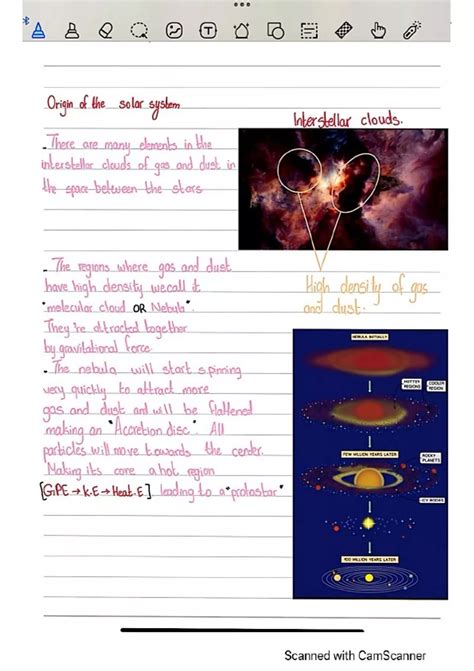 Origin of the solar system
Interstellar clouds.
- There are many elements in the
interstellar clouds of gas and dust in
the space between the stars
- The regions where gas and dust
have high density we call it
"molecular cloud OR Nebula".
They're attracted together
by gravitational force.
High density of gas
and dust.
- The nebula will start spinning
very quickly to attract more
gas and dust and will be flattened
making an "Accretion disc". All
particles will move towards the center.
Making its core a hot region
[G.P.E → K.E → Heat.E] leading to a "protostar"
NEBULA INITIALLY
HOTTER
REGION
COOLER
REGION
FEW MILLION YEARS LATER
ROCKY
PLANETS
ICY BODIES
100 MILLION YEARS LATER
Scanned with CamScanner